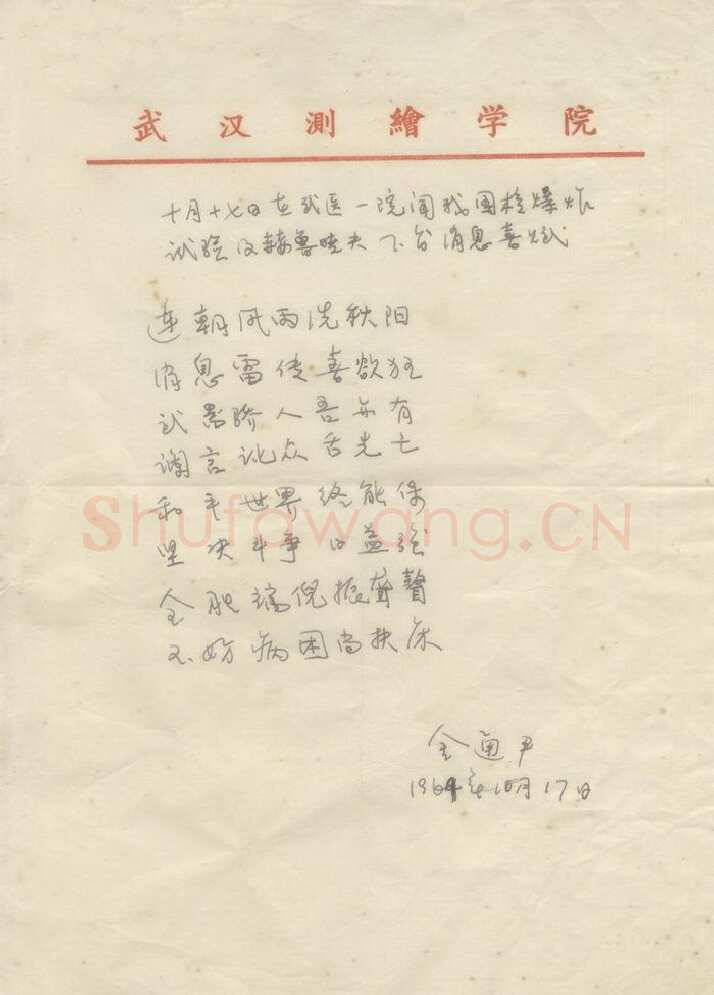 武汉测繪学院
十月十七日在武医一院闻我国核爆炸
试验及赫鲁晓夫下台消息喜赋
连朝风雨洗秋阳
消息雷传喜欲狂
武器骄人吾亦有
谰言讹众舌先亡
和平世界终能保
坚决斗争日益强
全肥端倪振聋瞽
不妨病困尚扶床
金通尹
1964年10月17日
Shufawang.CN